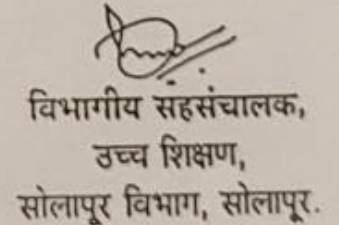 विभागीय सहसंचालक,
उच्च शिक्षण,
सोलापूर विभाग, सोलापूर.